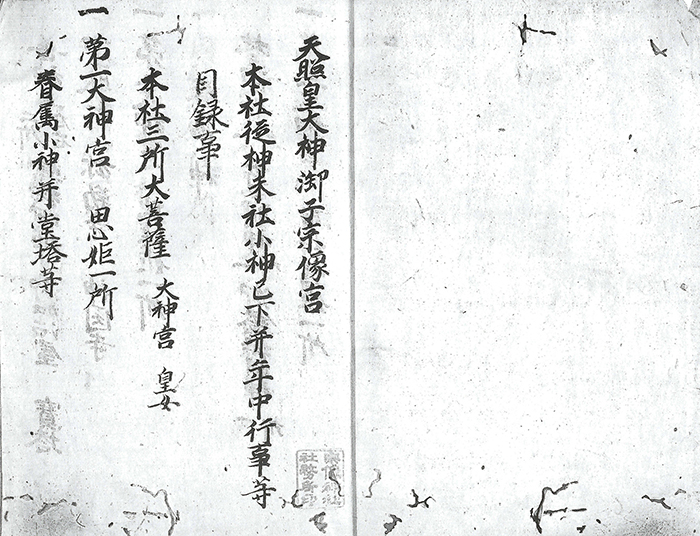 天照皇大神御子宗像宮
本社従神末社小神已下并年中行事等
目録事
本社三所大菩薩 大神宮 皇女
一 第一大神宮 思姫一所
眷属小神并堂塔等